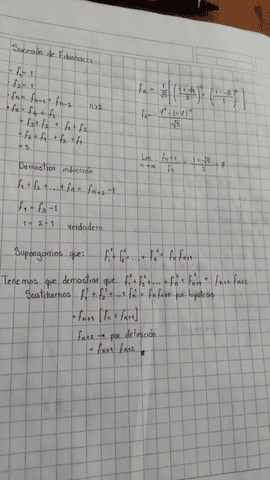 Sucesión de Fibonacci
- f₁ = 1
- f₂ = 1
- fₙ = fₙ₋₁ + fₙ₋₂   n>2
- f₅ = f₄ + f₃
= f₃ + f₂ + f₁ + f₂
= f₂ + f₁ + f₂ + f₁
= 5
fₙ = 1/√5 [((1+√5)/2)ⁿ - ((1-√5)/2)ⁿ]
Lim n→∞ fₙ₊₁/fₙ = (1+√5)/2 = φ
Demostrar inducción
f₁ + f₂ + ... + fₙ = fₙ₊₂ - 1
f₁ = f₃ - 1
1 = 2 - 1   verdadero
Supongamos que: f₁² + f₂² + ... + fₙ² = fₙ fₙ₊₁
Tenemos que demostrar que f₁² + f₂² + ... + fₙ² + fₙ₊₁² = fₙ₊₁ fₙ₊₂
Sustituimos f₁² + f₂² + ... + fₙ² = fₙ fₙ₊₁ por hipótesis
= fₙ₊₁ [fₙ + fₙ₊₁]
fₙ₊₂ → por definición
= fₙ₊₁ fₙ₊₂